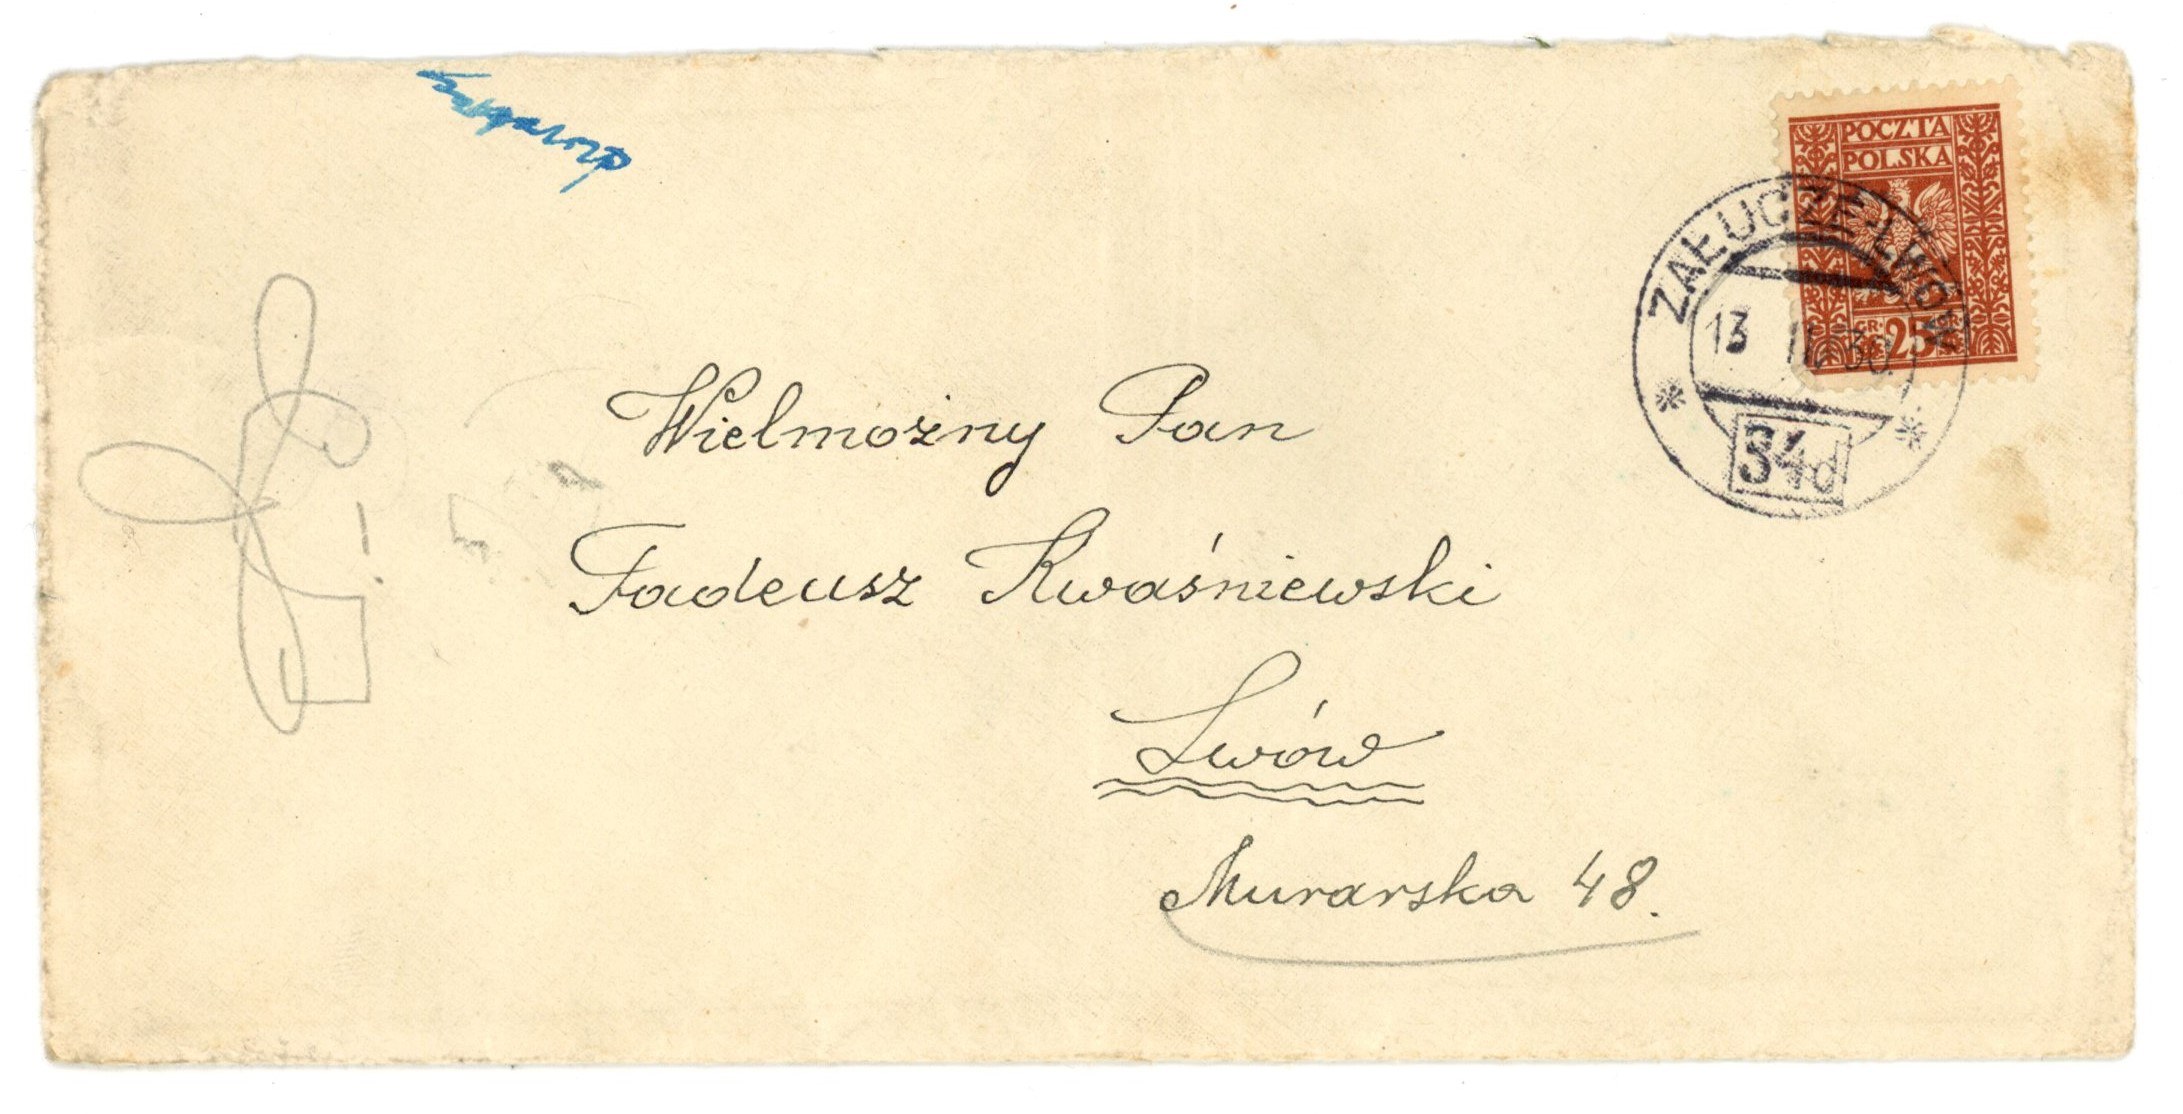 POCZTA
POLSKA
GR. 25
ZAŁUCZE-LWÓW
13 II 30
34d
Wielmożny Pan
Tadeusz Kwaśniewski
Lwów
Murarska 48.